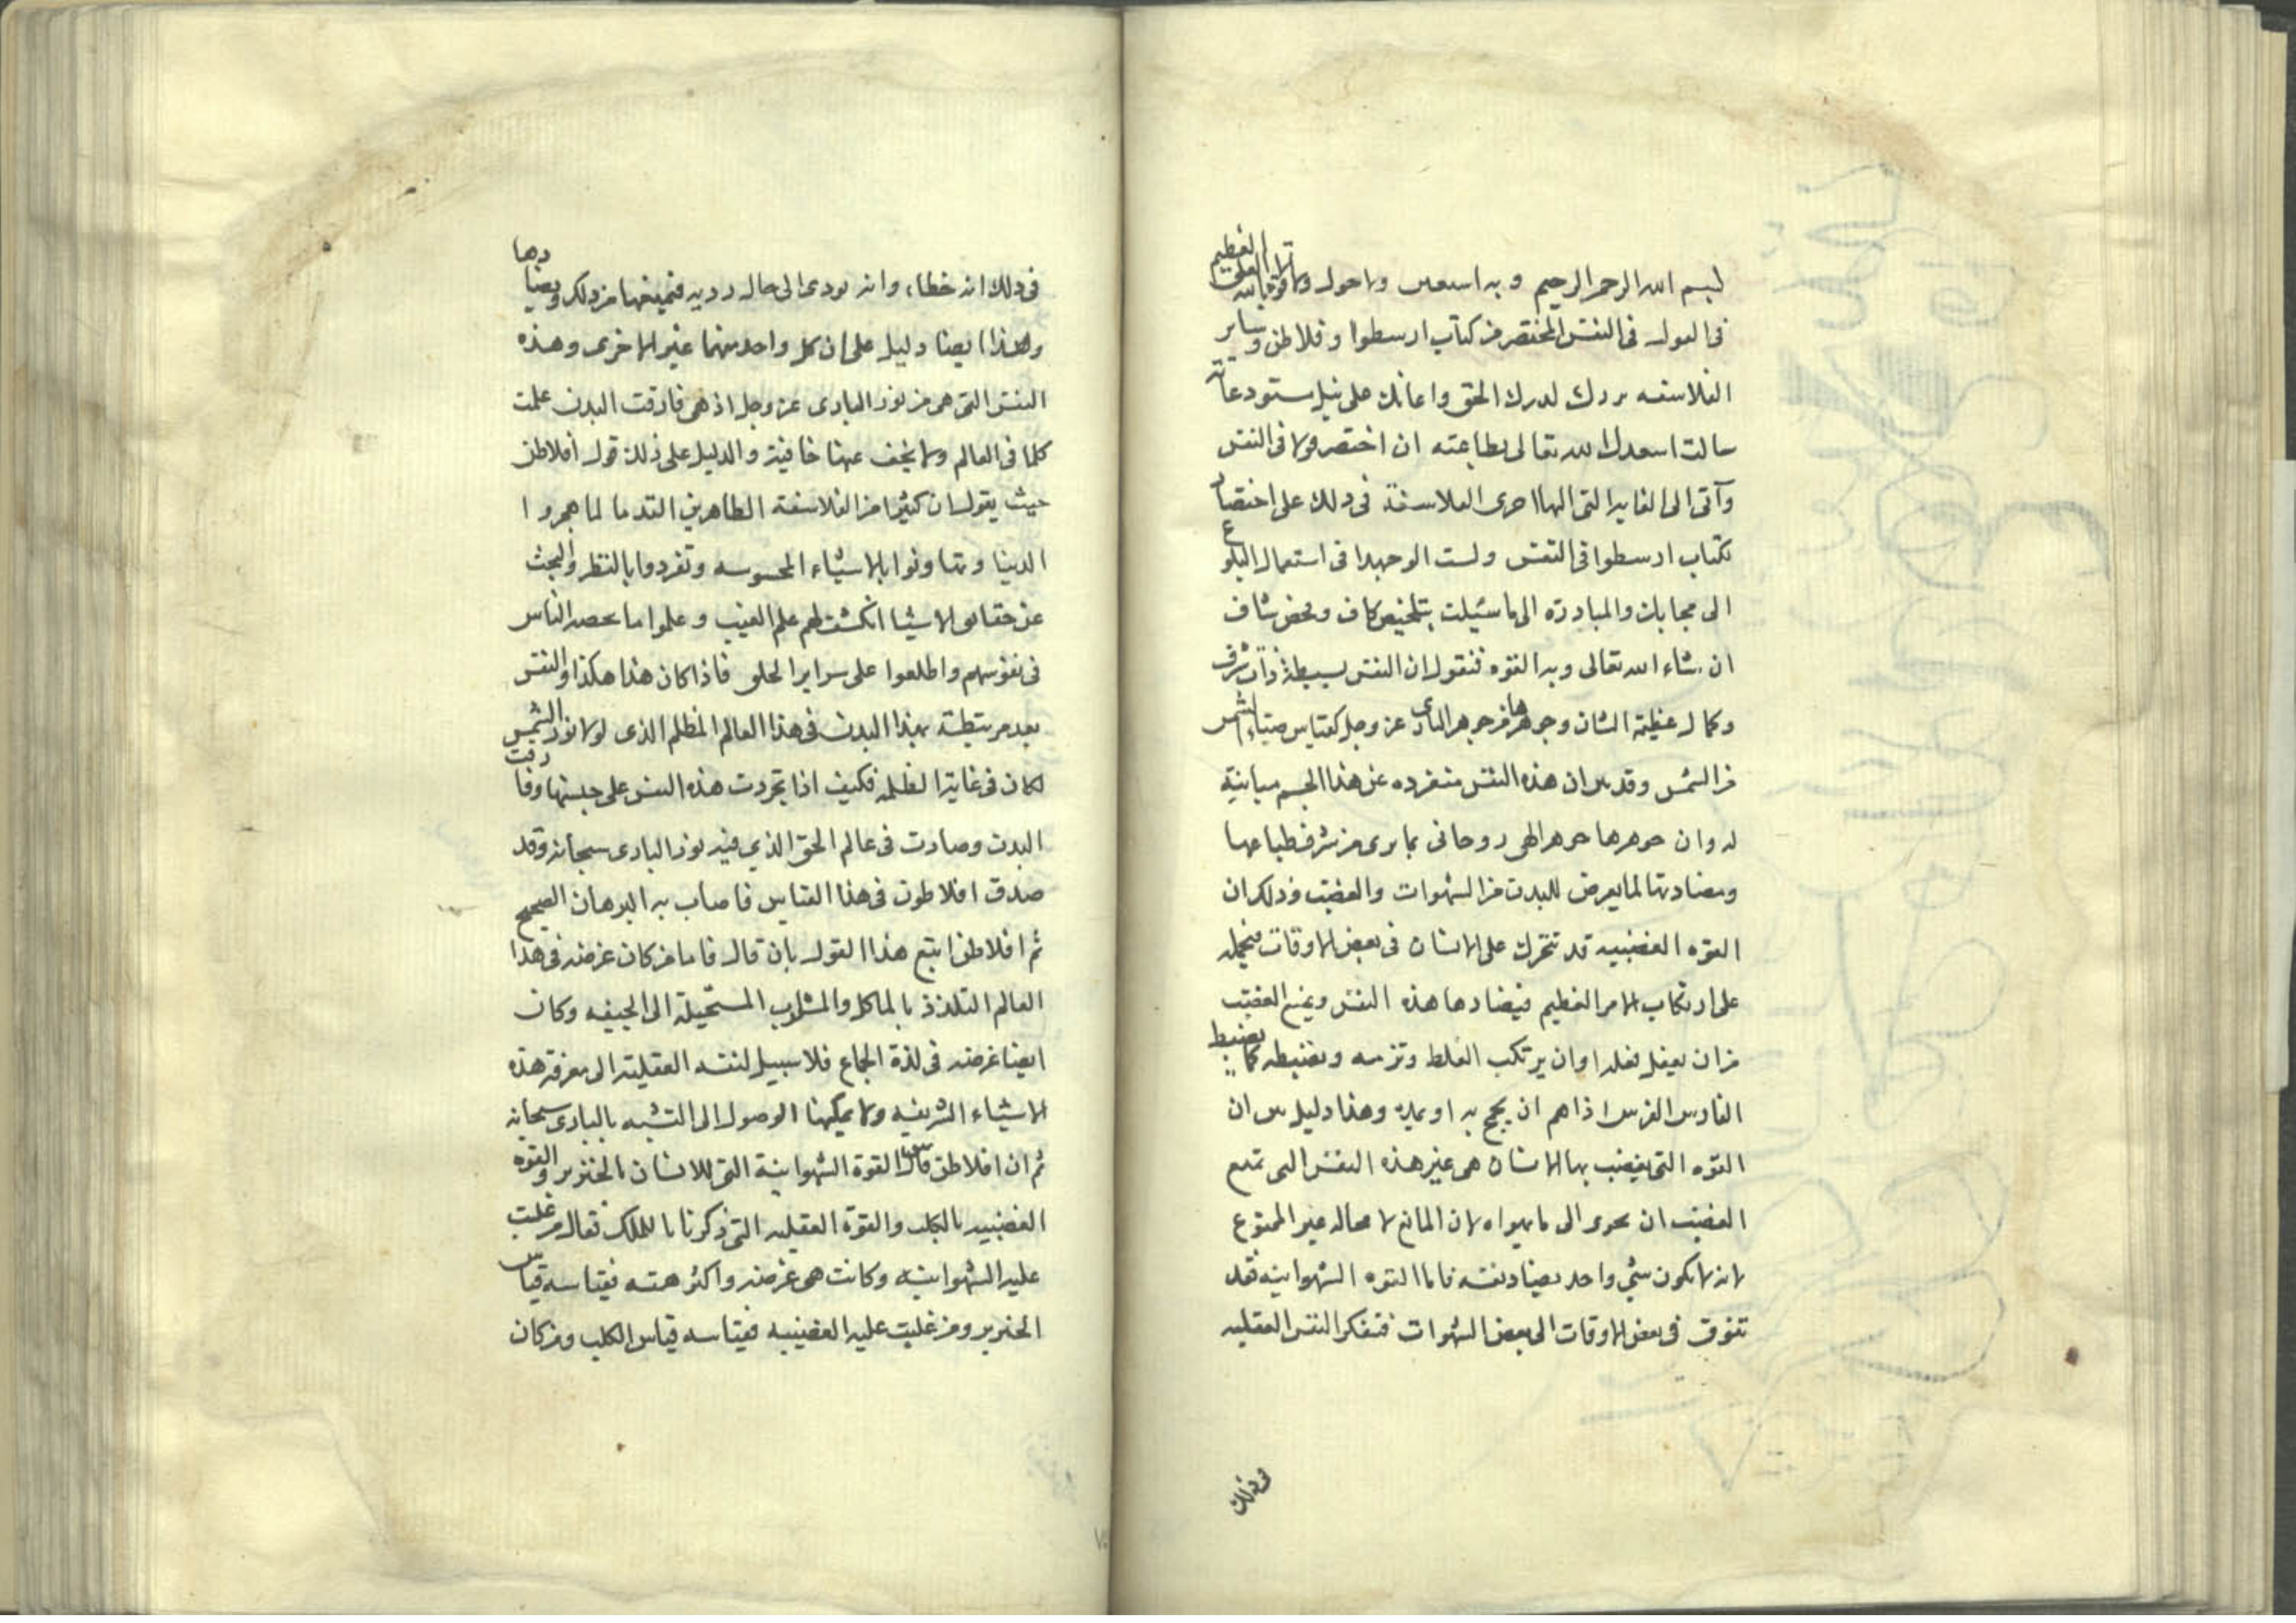 لبسم الله الرحمن الرحيم و به استعين ولا حول ولا قوة الا بالله العلى العظيم
فى القول فى النفس المختصر من كتاب ارسطوا وفلاطن وساير
الفلاسفه سددك لدرك الحق واعانك على نيل مستودعاته
سالت اسعدك الله تعالى بطاعته ان اختصر قولا فى النفس
وآتى الى الغايه التى اليها اجرى الفلاسفة فى ذلك على اختصار
لكتاب ارسطوا فى النفس ولست الوجهدا فى استعمال البلوغ
الى مجابك والمبادرة الى ما سئيلت بتلخيص كاف وفحص شاف
ان شاء الله تعالى وبه القوه فنقول ان النفس بسيطة ذات شرف
وكمال عظيمة الشان وجوهرها من جوهر البارى عز وجل كقياس ضياء الشمس
من الشمس وقد بين ان هذه النفس منفرده عن هذا الجسم مباينة
له وان جوهرها جوهر الهى روحانى بما يرى من شرف طباعها
ومضادتها لما يعرض للبدن من الشهوات والغضب وذلك ان
القوه الغضبيه قد تتحرك على الانسان فى بعض الاوقات فيحمله
على ارتكاب الامر العظيم فيضادها هذه النفس ويمنع الغضب
من ان يفعل فعله او ان يرتكب الغلط وتزمه وبضبطه كما يضبط
الفارس الفرس اذا هم ان يجمح به او يمده وهذا دليل بين ان
القوه التى يغضب بها الانسان هى غير هذه النفس التى تمنع
الغضب ان يجرى الى ما يهواه لان المانع لا محاله غير الممنوع
لانه لا يكون شئ واحد يضاد نفسه فاما القوه الشهوانيه فقد
تتوق فى بعض الاوقات الى بعض الشهوات فتفكر النفس العقليه
فى ذلك
فى ذلك انه خطاء وانه يودى الى حاله رديه فتمنعها من ذلك ويضادها
وهذا ايضا دليل على ان كل واحد منهما غير الاخرى وهذه
النفس التى هى من نور البارى عز وجل اذ هى فارقت البدن علمت
كلما فى العالم ولا يخف عنها خافية والدليل على ذلك قول افلاطن
حيث يقول ان كثيرا من الفلاسفة الطاهرين القدما لما هجروا
الدنيا وتهاونوا بالاشياء المحسوسه وتفردوا بالنظر والبحث
عن حقايق الاشيا انكشف لهم علم الغيب وعلموا ما يخفيه الناس
فى نفوسهم واطلعوا على سراير الخلق فاذا كان هذا هكذا والنفس
بعد مرتبطة بهذا البدن فى هذا العالم المظلم الذى لولا نور الشمس
لكان فى غاية الظلمه فكيف اذا تجردت هذه النفس على جبستها وفارقت
البدن وصارت فى عالم الحق الذي فيه نور البارى سبحانه وقد
صدق افلاطون فى هذا القياس فاصاب به البرهان الصحيح
ثم افلاطن اتبع هذا القول بان قال فاما من كان غرضه فى هذا
العالم التلذذ بالماكل والمشارب المستحيلة الى الجيفه وكان
ايضا غرضه فى لذة الجماع فلا سبيل لنفسه العقلية الى معرفة هذه
الاشياء الشريفه ولا يمكنها الوصول الى التشبه بالبارى سبحانه
ثم ان افلاطن قاس القوة الشهوانية التى للانسان بالخنزير والقوه
الغضبيه بالكلب والقوة العقليه التى ذكرنا بالملك فقال من غلبت
عليه الشهوانيه وكانت هى غرضه واكثر همته فقياسه قياس
الخنزير ومن غلبت عليه الغضبيه فقياسه قياس الكلب ومن كان